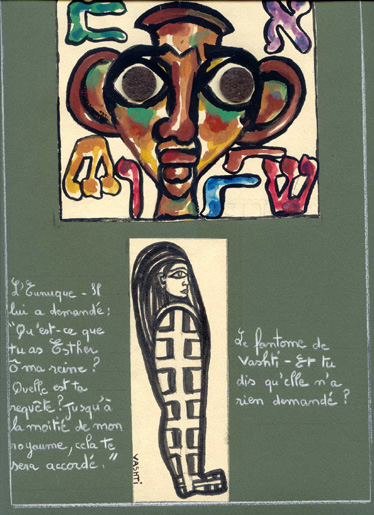 א ח
ש ו ר ו ש
L'Eunuque - Il
lui a demandé :
"Qu'est-ce que
tu as Esther
Ô ma reine ?
Quelle est ta
requête ? Jusqu'à
la moitié de mon
royaume, cela te
sera accordé."
VASHTI
Le fantome de
Vashti - Et tu
dis qu'elle n'a
rien demandé ?